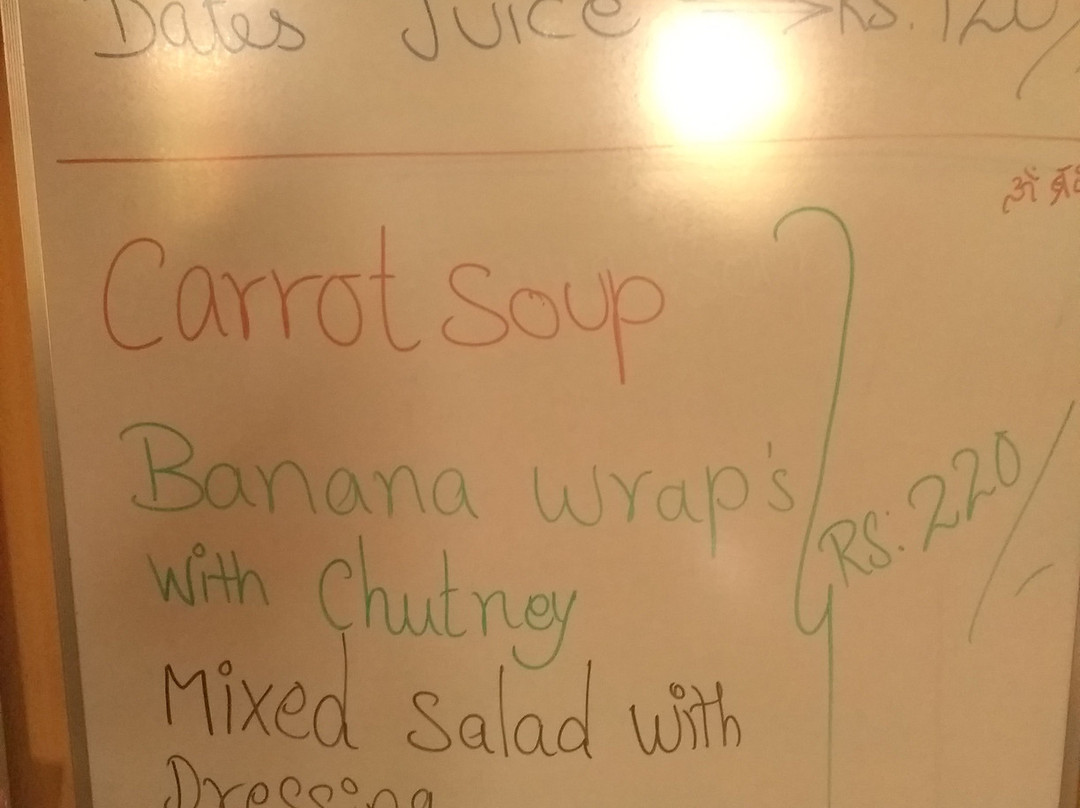 Dates Juice → Rs. 120/
Carrot Soup
Banana Wrap's
With Chutney
Rs. 220/-
Mixed Salad With
Dressing